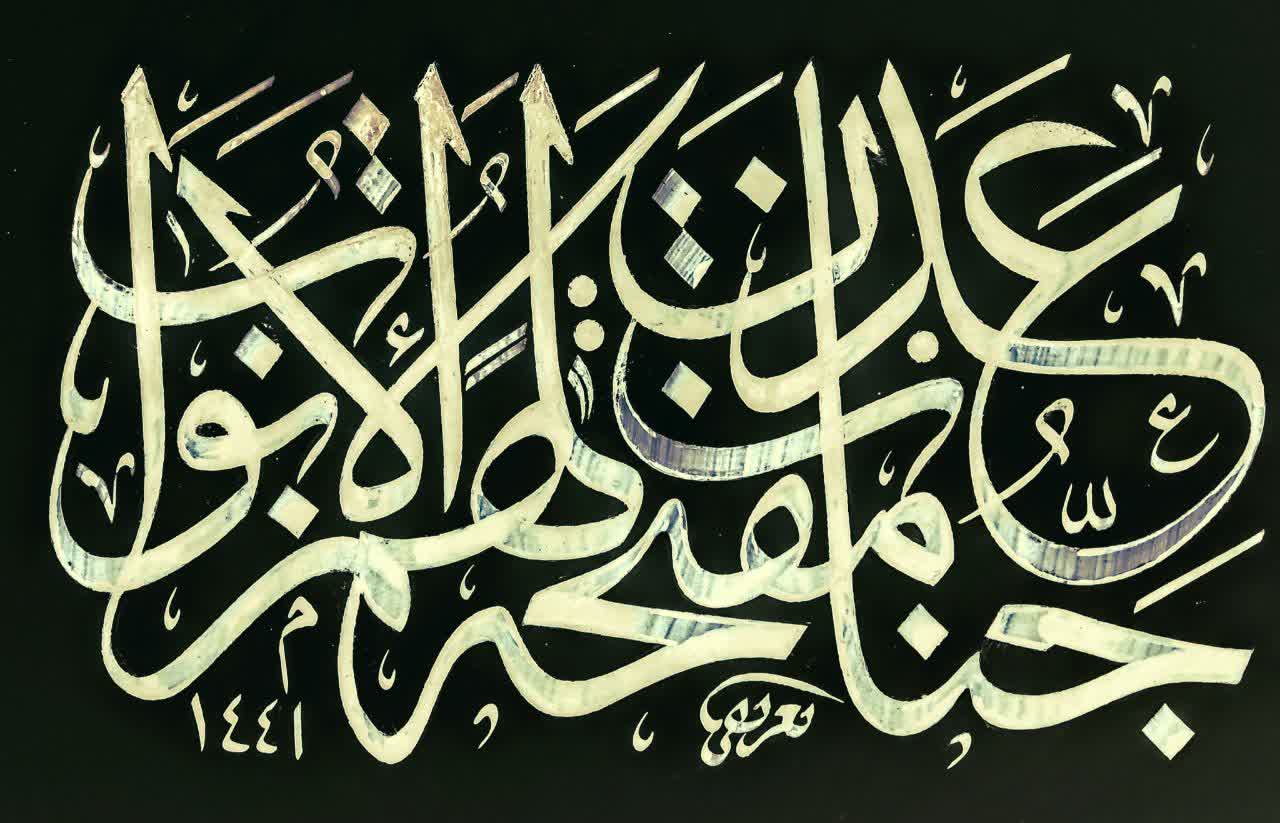 جنات عدن مفتحة لهم الأبواب
١٤٤١